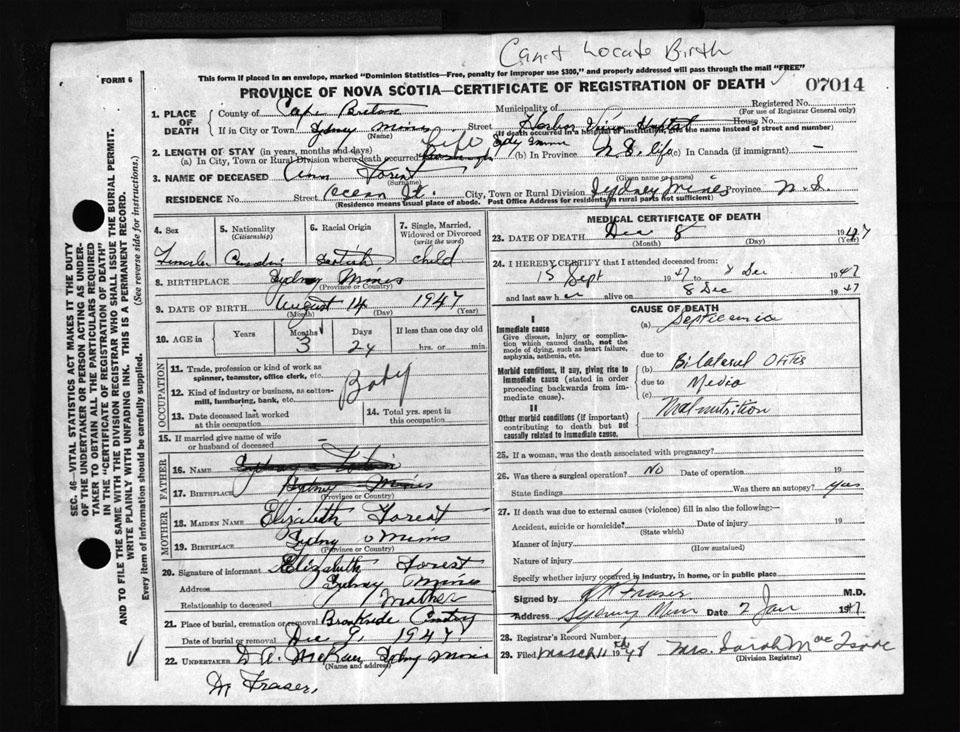 Can't Locate Birth
FORM 6
This form if placed in an envelope, marked "Dominion Statistics—Free, penalty for improper use $300," and properly addressed will pass through the mail "FREE"
PROVINCE OF NOVA SCOTIA—CERTIFICATE OF REGISTRATION OF DEATH
07014
1. PLACE OF DEATH
County of Cape Breton
Municipality of
Registered No.
(For use of Registrar General only)
If in City or Town Sydney Mines (Name)
Street Harbor View Hospital House No.
(If death occurred in a hospital or institution, give the name instead of street and number)
2. LENGTH OF STAY (in years, months and days)
(a) In City, Town or Rural Division where death occurred Life
(b) In Province N.S. life (c) In Canada (if immigrant) –
3. NAME OF DECEASED Ann Forest
(Surname) (Given name or names)
RESIDENCE No. Street Ocean St. City, Town or Rural Division Sydney Mines Province N.S.
(Residence means usual place of abode. Post Office Address for residents in rural parts not sufficient)
4. Sex
5. Nationality (Citizenship)
6. Racial Origin
7. Single, Married, Widowed or Divorced (write the word)
Female Canadian Scotish child
8. BIRTHPLACE Sydney Mines
(Province or Country)
9. DATE OF BIRTH August 14 1947
(Month) (Day) (Year)
10. AGE in Years Months Days If less than one day old
3 24 hrs. or min.
OCCUPATION
11. Trade, profession or kind of work as spinner, teamster, office clerk, etc.
12. Kind of industry or business, as cotton-mill, lumbering, bank, etc.
Baby
13. Date deceased last worked at this occupation
14. Total yrs. spent in this occupation
15. If married give name of wife or husband of deceased –
FATHER
16. NAME
17. BIRTHPLACE Sydney Mines
(Province or Country)
MOTHER
18. MAIDEN NAME Elizabeth Forest
19. BIRTHPLACE Sydney Mines
(Province or Country)
20. Signature of informant Elizabeth Forest
Address Sydney Mines
Relationship to deceased Mother
21. Place of burial, cremation or removal Brookside Cemetery
Date of burial or removal Dec 9, 1947
22. UNDERTAKER D A. McRae Sydney Mines
(Name and address)
M Fraser,
MEDICAL CERTIFICATE OF DEATH
23. DATE OF DEATH Dec 8 1947
(Month) (Day) (Year)
24. I HEREBY CERTIFY that I attended deceased from:
15 Sept 1947 to 8 Dec 1947
and last saw her alive on 8 Dec 1947
CAUSE OF DEATH
I
Immediate cause
Give disease, injury or complication which caused death, not the mode of dying, such as heart failure, asphyxia, asthenia, etc.
(a) Septicemia
due to
Morbid conditions, if any, giving rise to immediate cause (stated in order proceeding backwards from immediate cause).
(b) Bilateral Otitis
due to Media
(c)
II
Other morbid conditions (if important) contributing to death but not causally related to immediate cause.
Malnutrition
25. If a woman, was the death associated with pregnancy?
26. Was there a surgical operation? No Date of operation 19
State findings Was there an autopsy? yes
27. If death was due to external causes (violence) fill in also the following:—
Accident, suicide or homicide? Date of injury 19
(State which)
Manner of injury
(How sustained)
Nature of injury
Specify whether injury occurred in industry, in home, or in public place
Signed by Fraser M.D.
Address Sydney Mines Date 2 Jan 1947.
28. Registrar's Record Number
29. Filed March 11 1948 Mrs. Sarah Mac Isaac
(Division Registrar)
SEC. 46—VITAL STATISTICS ACT MAKES IT THE DUTY OF THE UNDERTAKER OR PERSON ACTING AS UNDERTAKER TO OBTAIN ALL THE PARTICULARS REQUIRED IN THE "CERTIFICATE OF REGISTRATION OF DEATH" AND TO FILE THE SAME WITH THE DIVISION REGISTRAR WHO SHALL ISSUE THE BURIAL PERMIT.
WRITE PLAINLY WITH UNFADING INK. THIS IS A PERMANENT RECORD.
Every item of information should be carefully supplied. (See reverse side for instructions.)